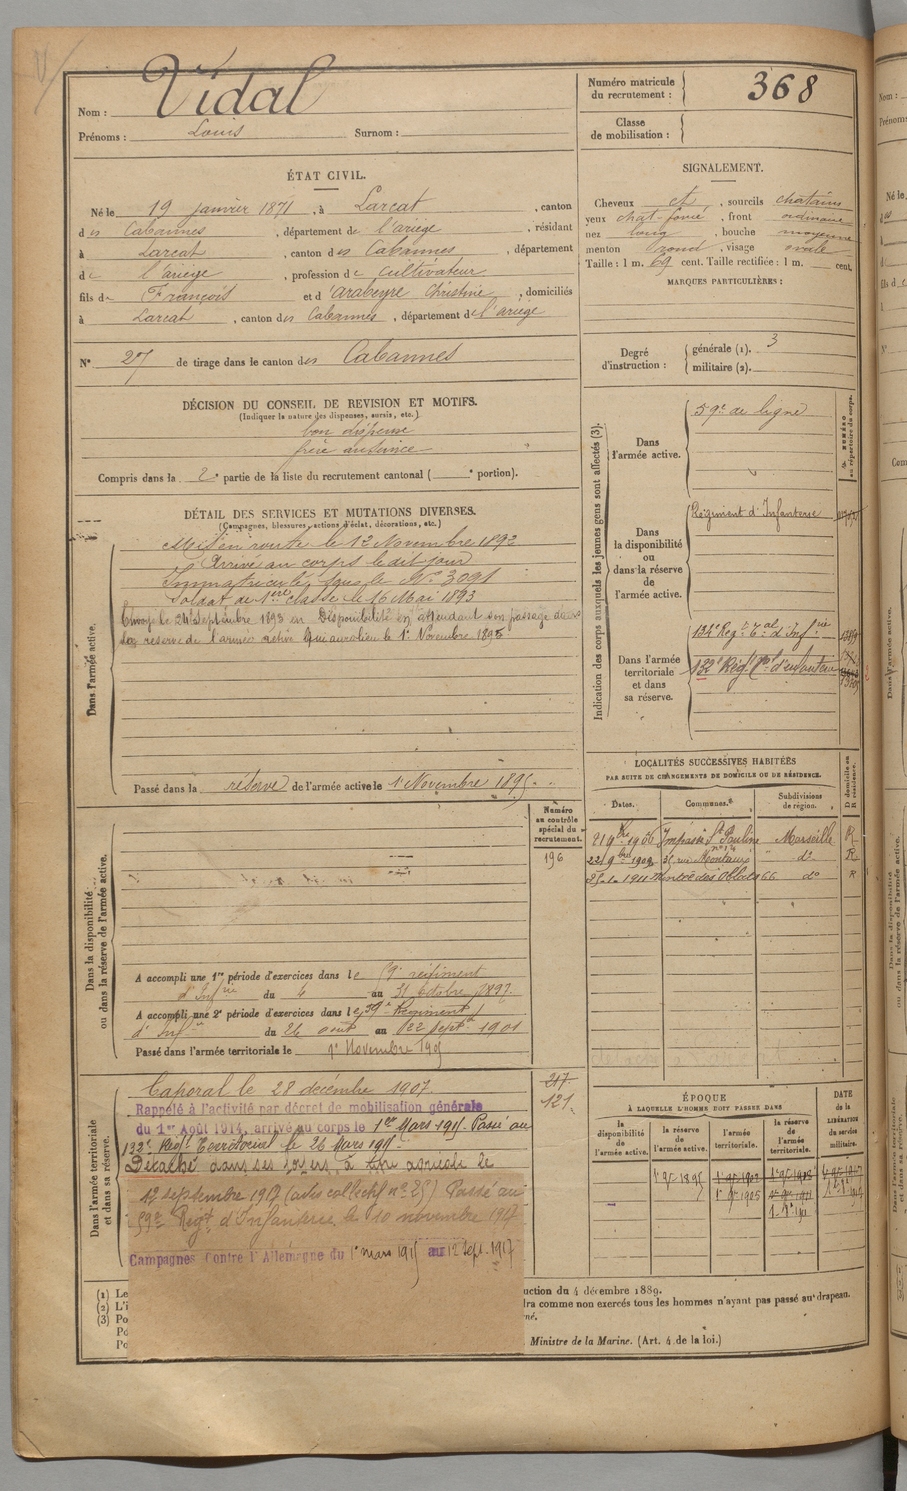 Nom : Vidal
Prénoms : Louis Surnom :
Numéro matricule du recrutement : 368
Classe de mobilisation :
ÉTAT CIVIL.
Né le 19 janvier 1871, à Larcat, canton
des Cabannes, département de l'ariège, résidant
à Larcat, canton des Cabannes, département
de l'ariège, profession de cultivateur
fils de François et d'arabeyre Christine, domiciliés
à Larcat, canton des Cabannes, département de l'ariège
N° 27 de tirage dans le canton des Cabannes
SIGNALEMENT.
Cheveux et, sourcils chatains
yeux chat-foncé, front ordinaire
nez long, bouche moyenne
menton rond, visage ovale
Taille : 1 m. 69 cent. Taille rectifiée : 1 m. cent.
MARQUES PARTICULIÈRES :
Degré d'instruction : générale (1). 3
militaire (2).
DÉCISION DU CONSEIL DE REVISION ET MOTIFS.
(Indiquer la nature des dispenses, sursis, etc.)
bon dispensé
frère au service
Compris dans la 2e partie de la liste du recrutement cantonal ( e portion).
DÉTAIL DES SERVICES ET MUTATIONS DIVERSES.
(Campagnes, blessures, actions d'éclat, décorations, etc.)
Dans l'armée active.
Mis en route le 12 Novembre 1892
Arrivé au corps le dit jour
Immatriculé sous le No 3091
Soldat de 1ère classe le 16 Mai 1893
Envoyé le 24 Septembre 1893 en Disponibilité en attendant son passage dans
la reserve de l'armée active qui aura lieu le 1er Novembre 1895
Passé dans la réserve de l'armée active le 1er Novembre 1895
Indication des corps auxquels les jeunes gens sont affectés (3).
NUMÉRO au répertoire du corps.
Dans l'armée active.
59e de ligne
Dans la disponibilité ou dans la réserve de l'armée active.
Régiment d'Infanterie
Dans l'armée territoriale et dans sa réserve.
134e Régt Tal d'Infrie
132e Régt Tal d'infanterie
LOCALITÉS SUCCESSIVES HABITÉES
PAR SUITE DE CHANGEMENTS DE DOMICILE OU DE RÉSIDENCE.
Dates. Communes. Subdivisions de région. D domicile ou R résidence.
21 9bre 1906 Impasse Ste Pauline n° 14 Marseille R
22 9bre 1908 35 rue Montaux do R
1911 Montée des Oblats 66 do R
Numéro au contrôle spécial du recrutement.
196
Dans la disponibilité ou dans la réserve de l'armée active.
A accompli une 1re période d'exercices dans le 59e régiment
d'Infrie du 4 au 31 octobre 1897.
A accompli une 2e période d'exercices dans le 59e Régiment
d'Infie du 26 août au 22 septbre 1901
Passé dans l'armée territoriale le 1er Novembre 1905
Dans l'armée territoriale et dans sa réserve.
Caporal le 28 décembre 1907
217
121
Rappelé à l'activité par décret de mobilisation générale
du 1er Août 1914, arrivé au corps le 1er Mars 1915 Passé au
132e Régt Territorial le 26 Mars 1915
Détaché dans ses foyers, à titre agricole le
12 septembre 1917 (avis collectif n° 25) Passé au
59e Régt d'Infanterie, le 10 novembre 1917
Campagnes Contre l'Allemagne du 1er mars 1915 au 12 Sept. 1917
ÉPOQUE
À LAQUELLE L'HOMME DOIT PASSER DANS
la disponibilité de l'armée active.
la réserve de l'armée active.
l'armée territoriale.
la réserve de l'armée territoriale.
DATE de la LIBÉRATION du service militaire.
1er 9bre 1895
1er 9bre 1905
(1) Le
(2) L'i
(3) Po
Po
Po
uction du 4 décembre 1889.
dra comme non exercés tous les hommes n'ayant pas passé au drapeau.
né.
Ministre de la Marine. (Art. 4 de la loi.)